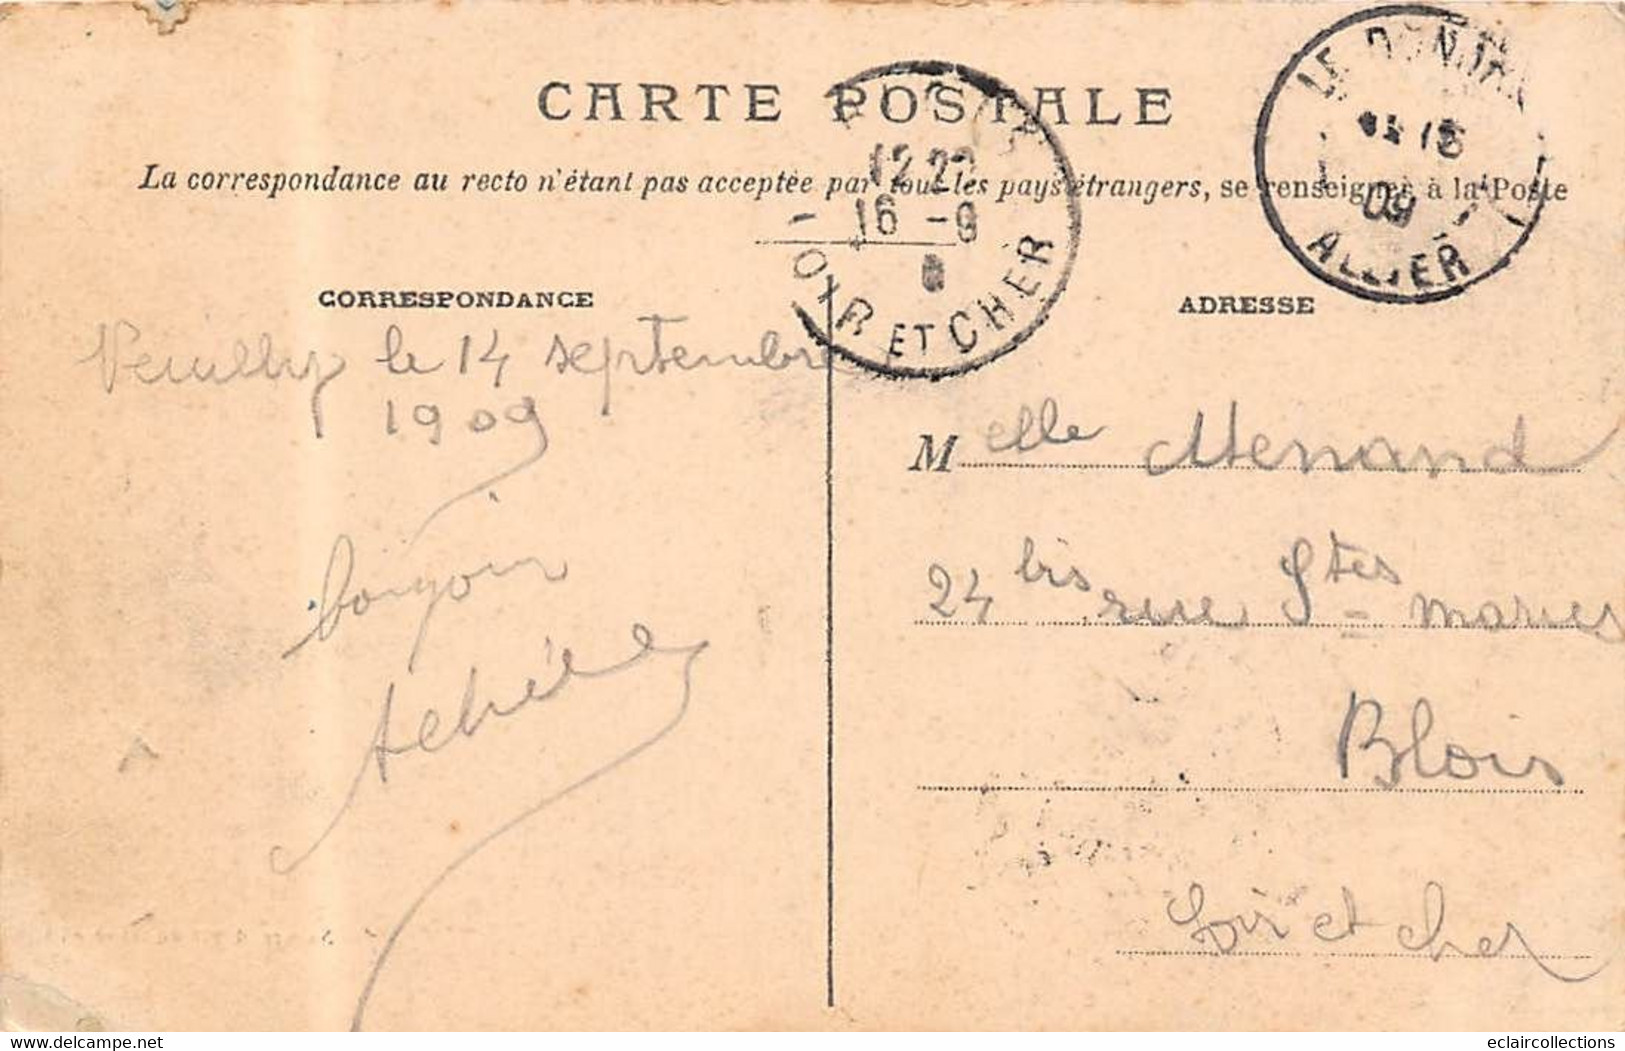 CARTE POSTALE
La correspondance au recto n'étant pas acceptée par tous les pays étrangers, se renseigner à la Poste
LE DONJON
15
09
ALLIER
12 22
16 - 9
LOIR ET CHER
CORRESPONDANCE
ADRESSE
le 14 septembre
1909
bonjour
Melle Menand
24 bis rue Stes maries
Blois
Loir et cher
www.delcampe.net
eclaircollections